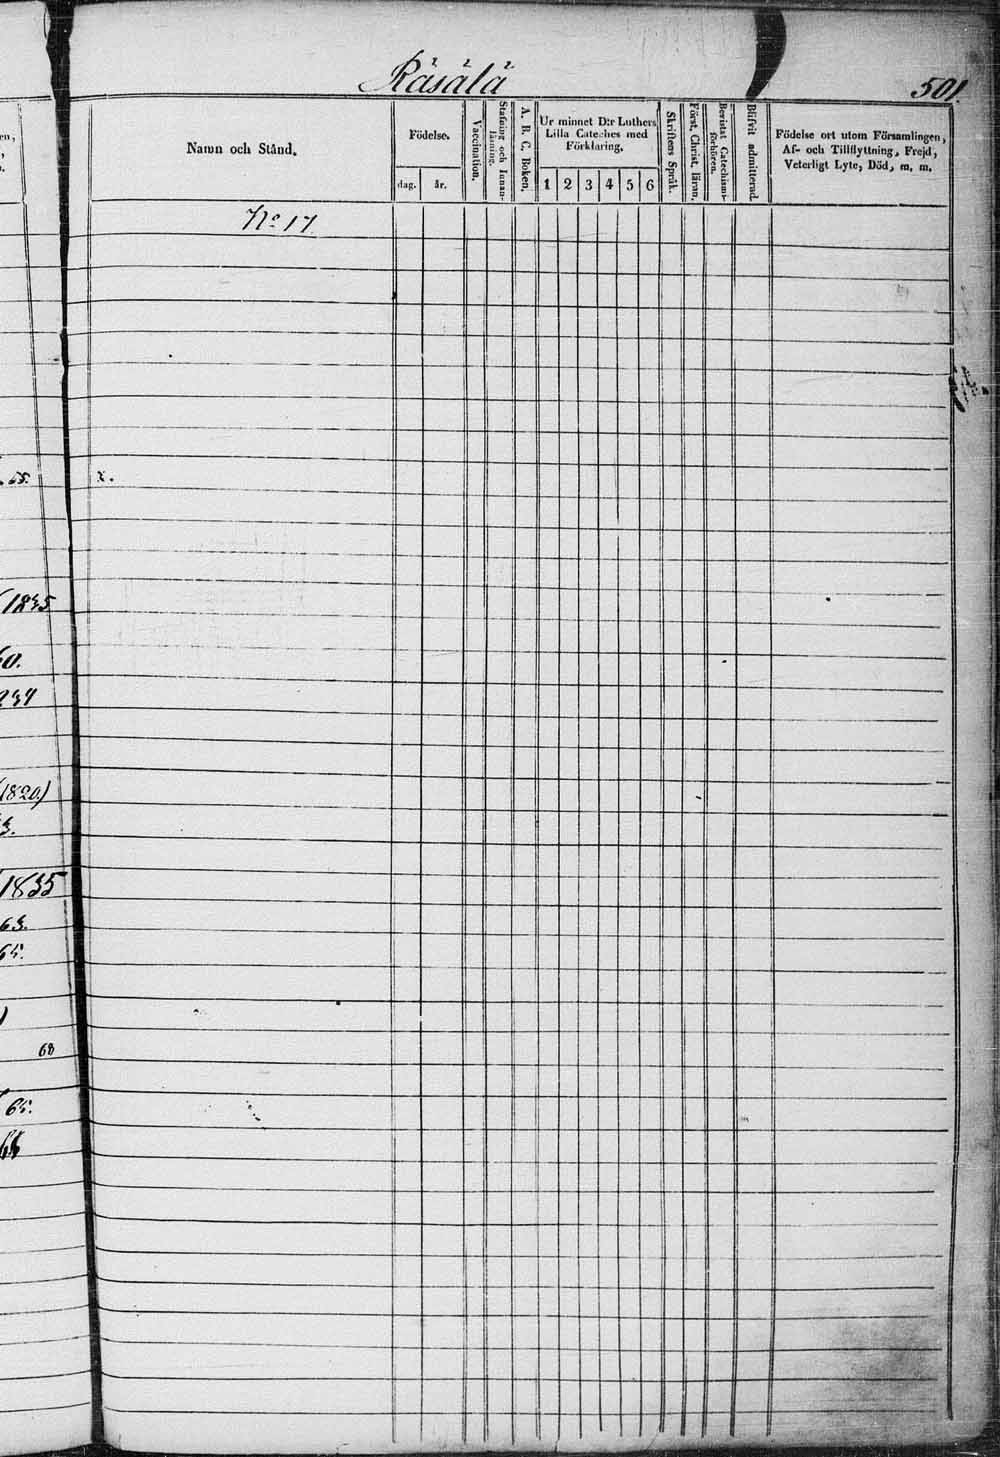 Räsälä
501.
Namn och Stånd.
Födelse.
dag.
år.
Vaccination.
Stafning och Innan-
läsning.
A. B. C. Boken.
Ur minnet D:r Luthers
Lilla Cateches med
Förklaring.
1 2 3 4 5 6
Skriftens Språk.
Först. Christ. läran.
Bevistat Catechismi-
förhören.
Blifvit admitterad.
Födelse ort utom Församlingen,
Af- och Tillflyttning, Frejd,
Veterligt Lyte, Död, m. m.
No 17
x.
1835
60.
(1820)
3.
1835
63.
65.
68
65.